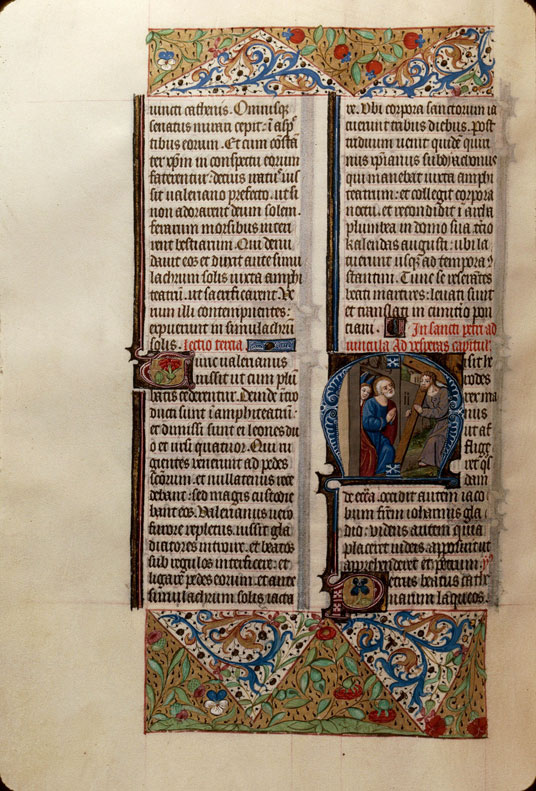 iuncti cathenis. Omnisq̄
senatus mirari cepit: ī asp̄
tibus eorum. Et cum cōstā
ter xp̄m in conspectu eorum
faterentur: decius
sit valeriano prefecto. ut si
non adorarent deum solem
ferarum morsibus interi
rent bestiarum. Qui
eos et dixit ante simu
lachrum solis iuxta amphi
teatrū. ut sacrificarent. Ve
rum illi contempnentes:
expuerunt in simulachrū
solis. Lectio tercia.
Tunc valerianus
iussit ut cum plū
batis cederentur. Deinde ītro
ducti sunt ī amphiteatrū:
et dimissi sunt ei leones du
o et ursi quatuor. Qui
gientes venerunt ad pedes
sc̄orum: et nullatenus rece
debant: sed magis custodie
bant eos. Valerianus vero
furore repletus. iussit gla
diatores introire. et beatos
sub regulos interficere: et
ligare pedes eorum: et ante
simulachrum solis iacta
re. Ubi corpora sanctorum ia
cuerunt tribus diebus. Post
triduum venit quidē quiri
nus xp̄ianus subdyaconus
qui manebat iuxta amphi
teatrum: et collegit corpora
noctu. et recondidit ī archa
plumbea in domo sua t̄cio
kalendas augusti: ubi la
tuerunt usq̄ ad tempora
stantini. Tunc se reserātes
beati martires: levati sunt
et translati in cimitio pon
ciani. In sancti petri ad
vincula Ad vesperas capitul
Misit he
rodes
rex ma
nus
ut af
flige
ret q̄s
dam
de ecc̄a. occidit autem iaco
bum fr̄em iohannis gla
dio: videns autem quia
placeret iudeis apposuit ut
apprehenderet et petrum:
Petrus beatus cathe
narum laqueos.